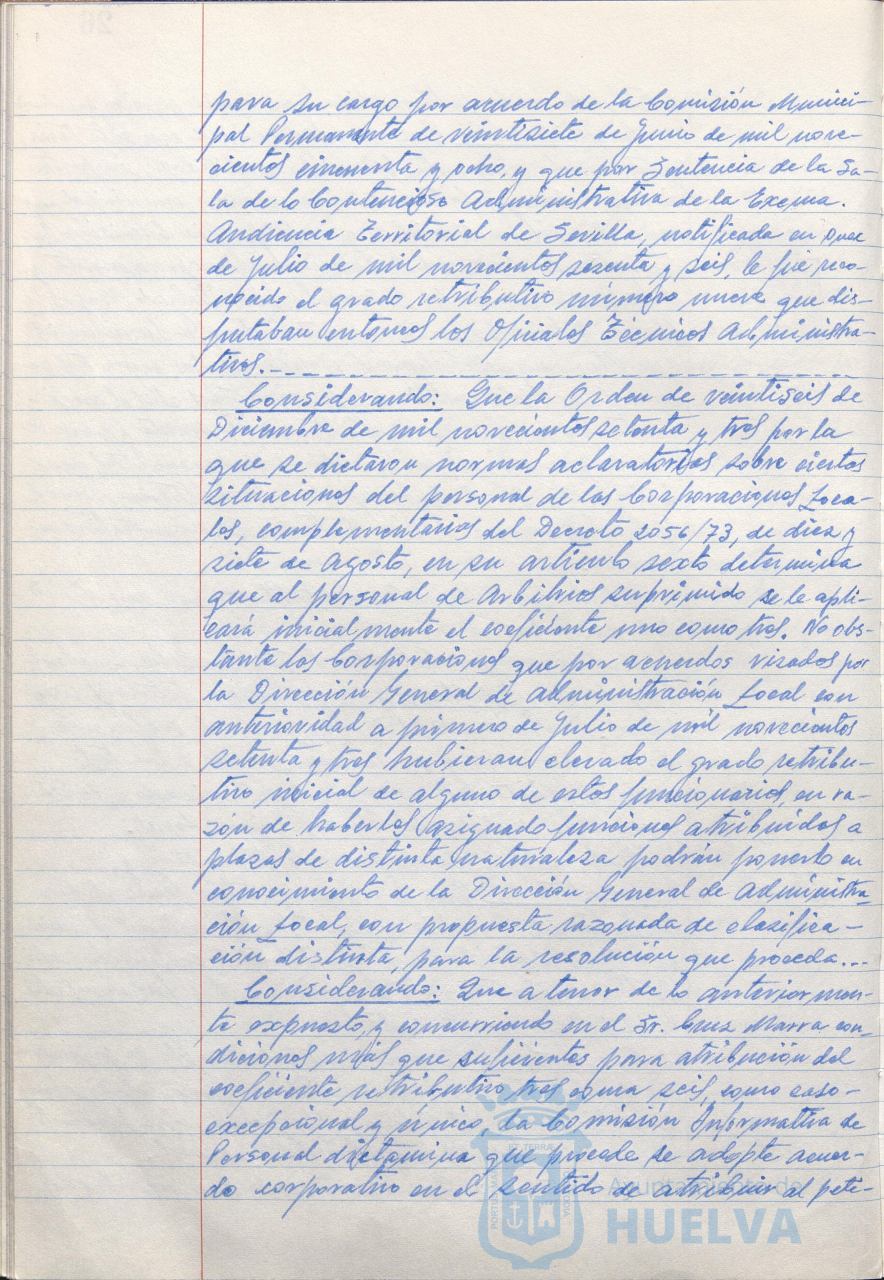 para su cargo por acuerdo de la Comisión Munici-
pal Permanente de veintisiete de Junio de mil nove-
cientos cincuenta y ocho, y que por Sentencia de la Sa-
la de lo Contencioso Administrativa de la Excma.
Audiencia Territorial de Sevilla, notificada en once
de Julio de mil novecientos sesenta y seis, le fue reco-
nocido el grado retributivo número nueve que dis-
frutaban entonces los Oficiales Técnicos Administra-
tivos.-
Considerando: Que la Orden de veintiseis de
Diciembre de mil novecientos setenta y tres por la
que se dictaron normas aclaratorias sobre ciertas
situaciones del personal de las Corporaciones Loca-
les, complementarias del Decreto 2056/73, de diez y
siete de Agosto, en su artículo sexto determina
que al personal de Arbitrios suprimido se le apli-
cará inicialmente el coeficiente uno coma tres. No obs-
tante las Corporaciones que por acuerdos visados por
la Dirección General de Administración Local con
anterioridad a primero de Julio de mil novecientos
setenta y tres hubieran elevado el grado retribu-
tivo inicial de alguno de estos funcionarios, en ra-
zón de haberles asignado funciones atribuidas a
plazas de distinta naturaleza podrán ponerlo en
conocimiento de la Dirección General de Administra-
ción Local, con propuesta razonada de clasifica-
ción distinta, para la resolución que proceda...
Considerando: Que a tenor de lo anteriormen-
te expuesto, y concurriendo en el Sr. Cruz Marra con-
diciones más que suficientes para atribución del
coeficiente retributivo tres coma seis, como caso
excepcional y único, la Comisión Informativa de
Personal dictamina que procede se adopte acuer-
do corporativo en el sentido de atribuir al peti-
Ayuntamiento de
HUELVA